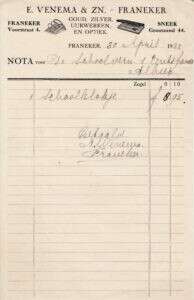 E. VENEMA & ZN. - FRANEKER
FRANEKER
Voorstraat 4.
GOUD, ZILVER,
UURWERKEN
EN OPTIEK.
SNEEK
Grootzand 44.
FRANEKER, 30 April
NOTA voor De Schoolver.
Zegel
f
1 Schoolklokje f 8,95
Betaald
E. Venema
Franeker